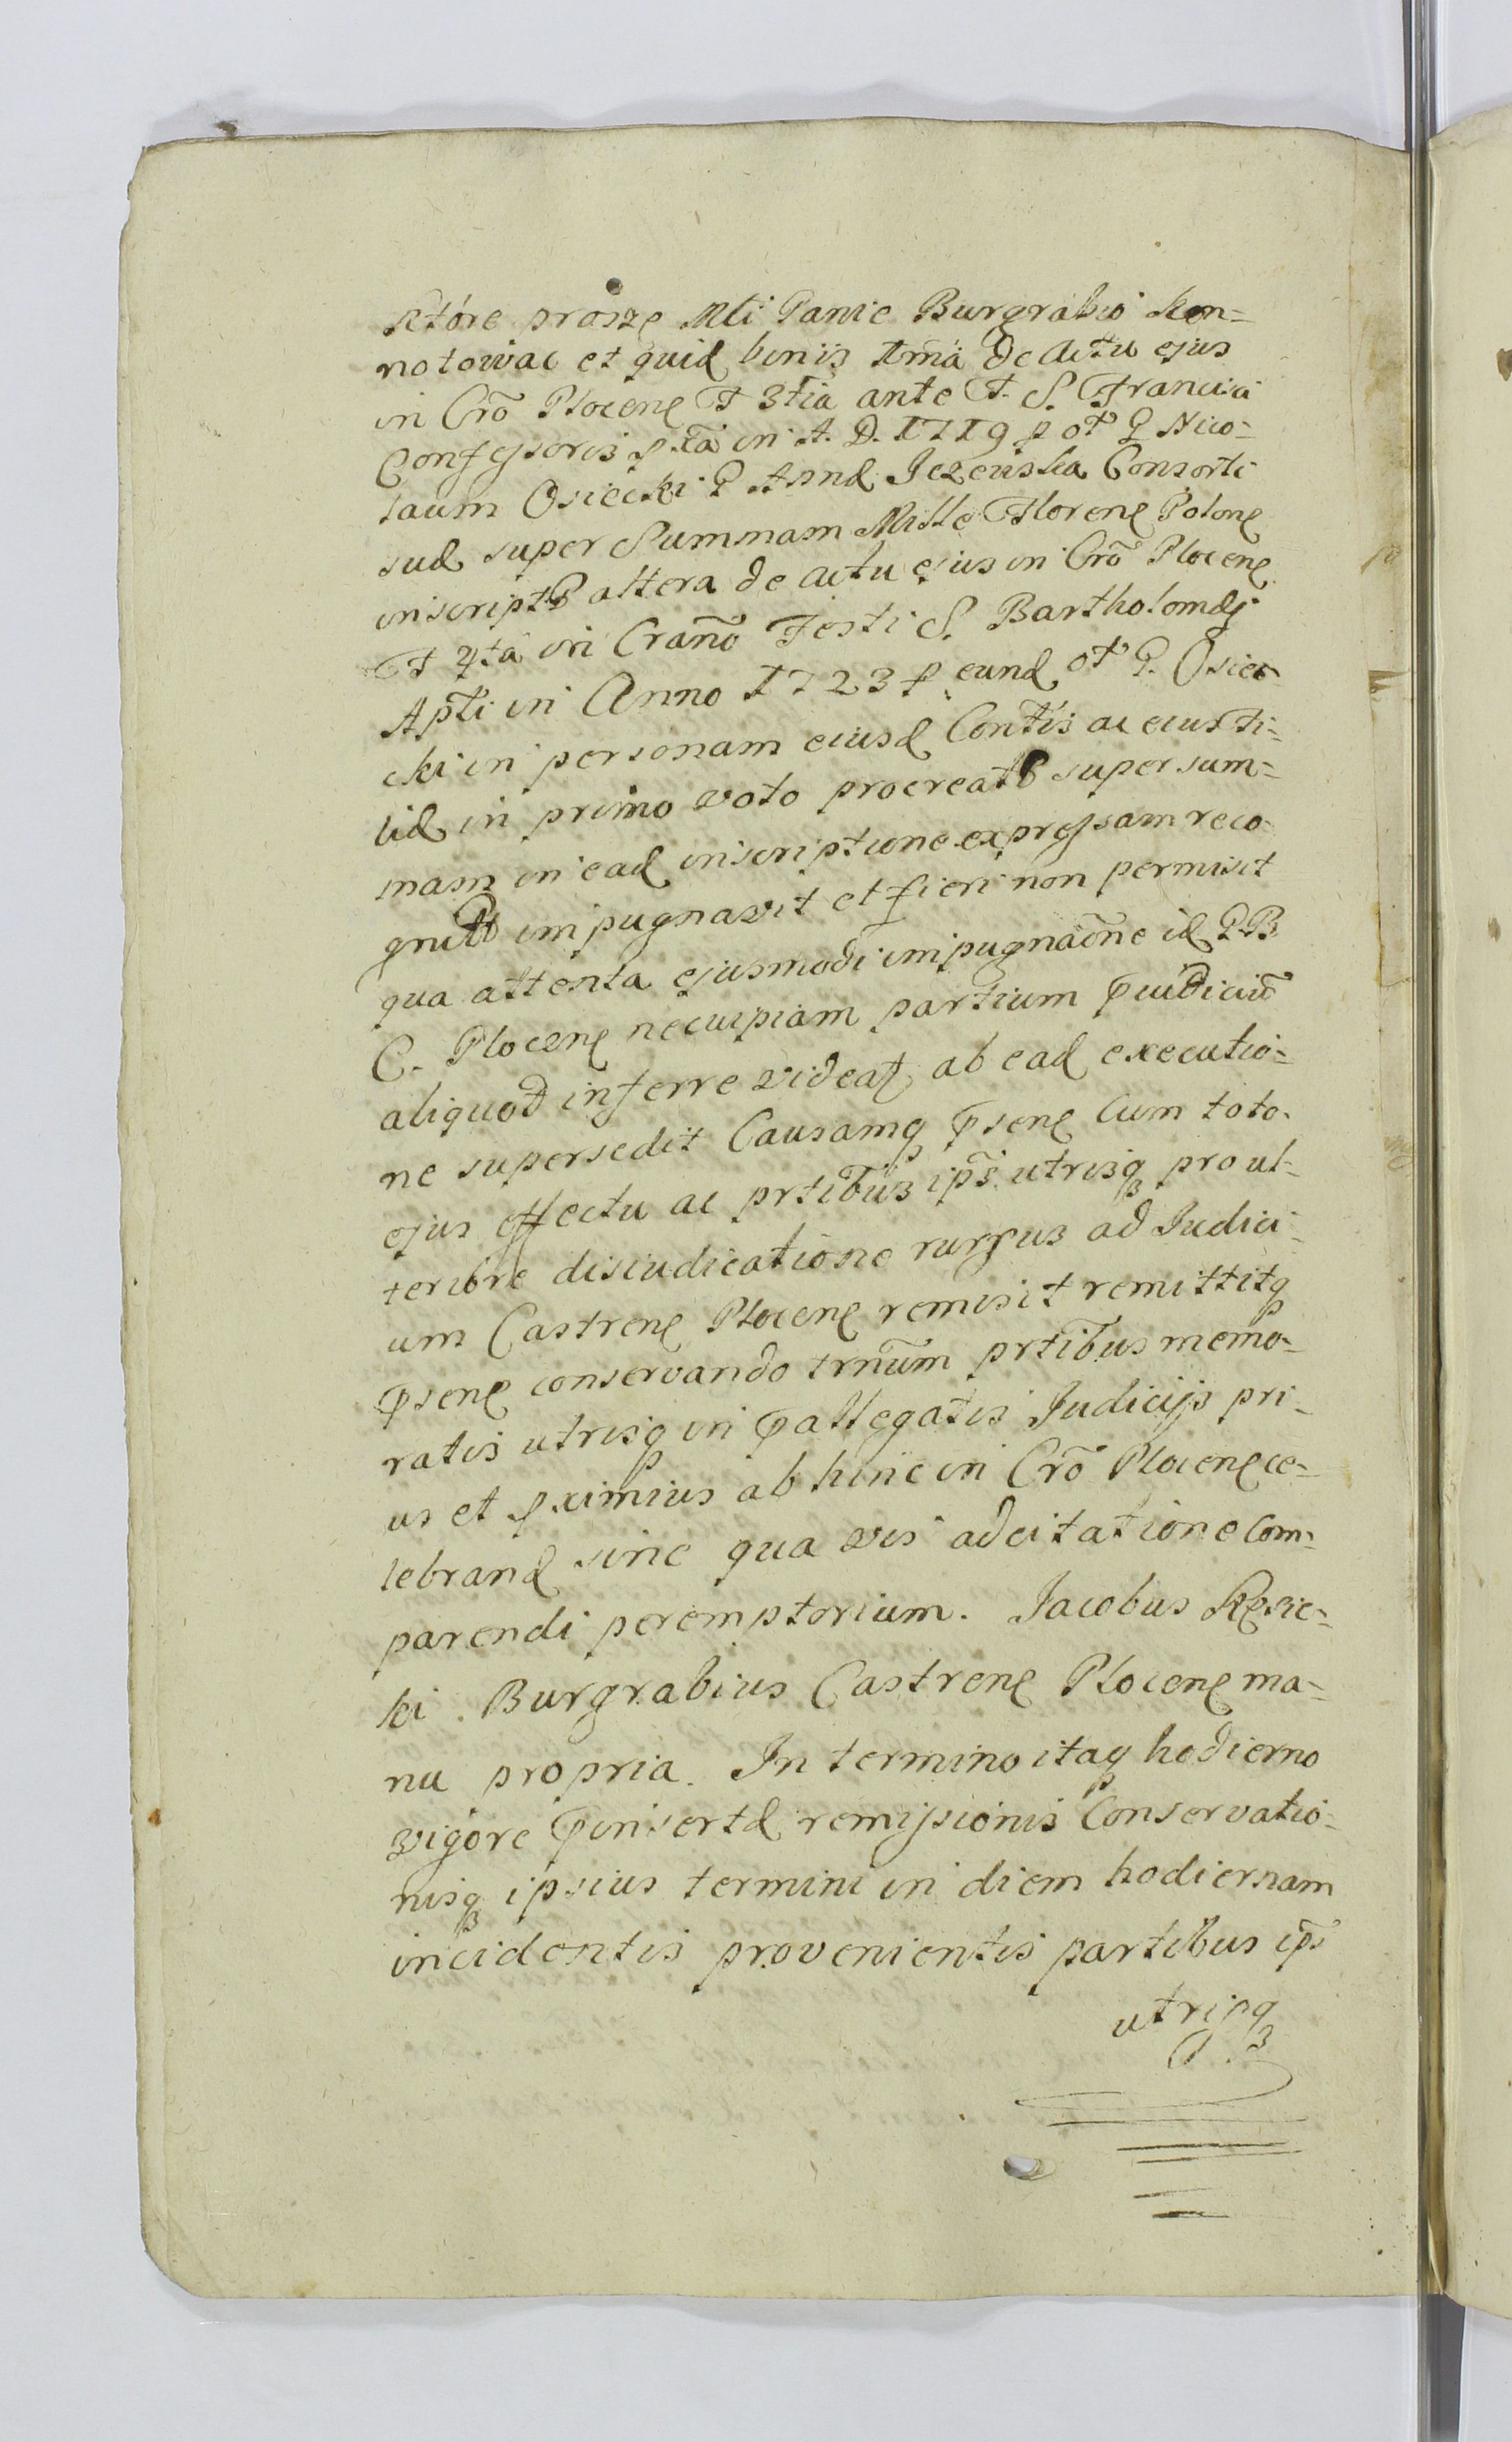 Ktore prosze Mti Panie Burgrabio kon=
notowac et quid binis Imã de Actu ejus
in Crõ Plocenę F 3tia ante F. S. Francisci
Confessoris pxã in A. D. 1719 p ot G Nico-
laum Osiecki G Annæ Jezewska Consorti
suæ super Summam Mille Florenę Polonę
inscript altera de actu ejus in Crõ Plocenę
F 4ta in Cranõ Festi S. Bartholomæj
Aptĩ in Anno 1723 p eund ot G. Osiec-
cki in personam eiusd Contis ac eius fi=
liæ in primo voto procreat super sum=
mam in ead inscriptione expressam reco-
gnitt impugnavit et fieri non permisit
qua attenta ejusmodi impugnaõne id G B
C. Plocenę necuipiam partium pjudiciũ
aliquod inferre videat, ab ead executio=
ne supersedit Causamq psenę Cum toto
ejus effectu ac prtibus ips utrisq pro ul=
teriore disiudicatione rursus ad Iudici=
um Castrenę Plocenę remisit remittitq
psenę conservando trnum prtibus memo=
ratis utrisq in pallegatis Judicijs pri=
us et pximius ab hinc in Crõ Plocenę ce=
lebrand sine qua vis adcitatione com=
parendi peremptorium. Jacobus Rzesie=
ki Burgrabius Castrenę Plocenę ma=
nu propria. In termino itaq hodierno
vigore pinsertæ remissionis Conservatio=
nisq ipsius termini in diem hodiernam
incidentis provenientis partibus ips
utrisq